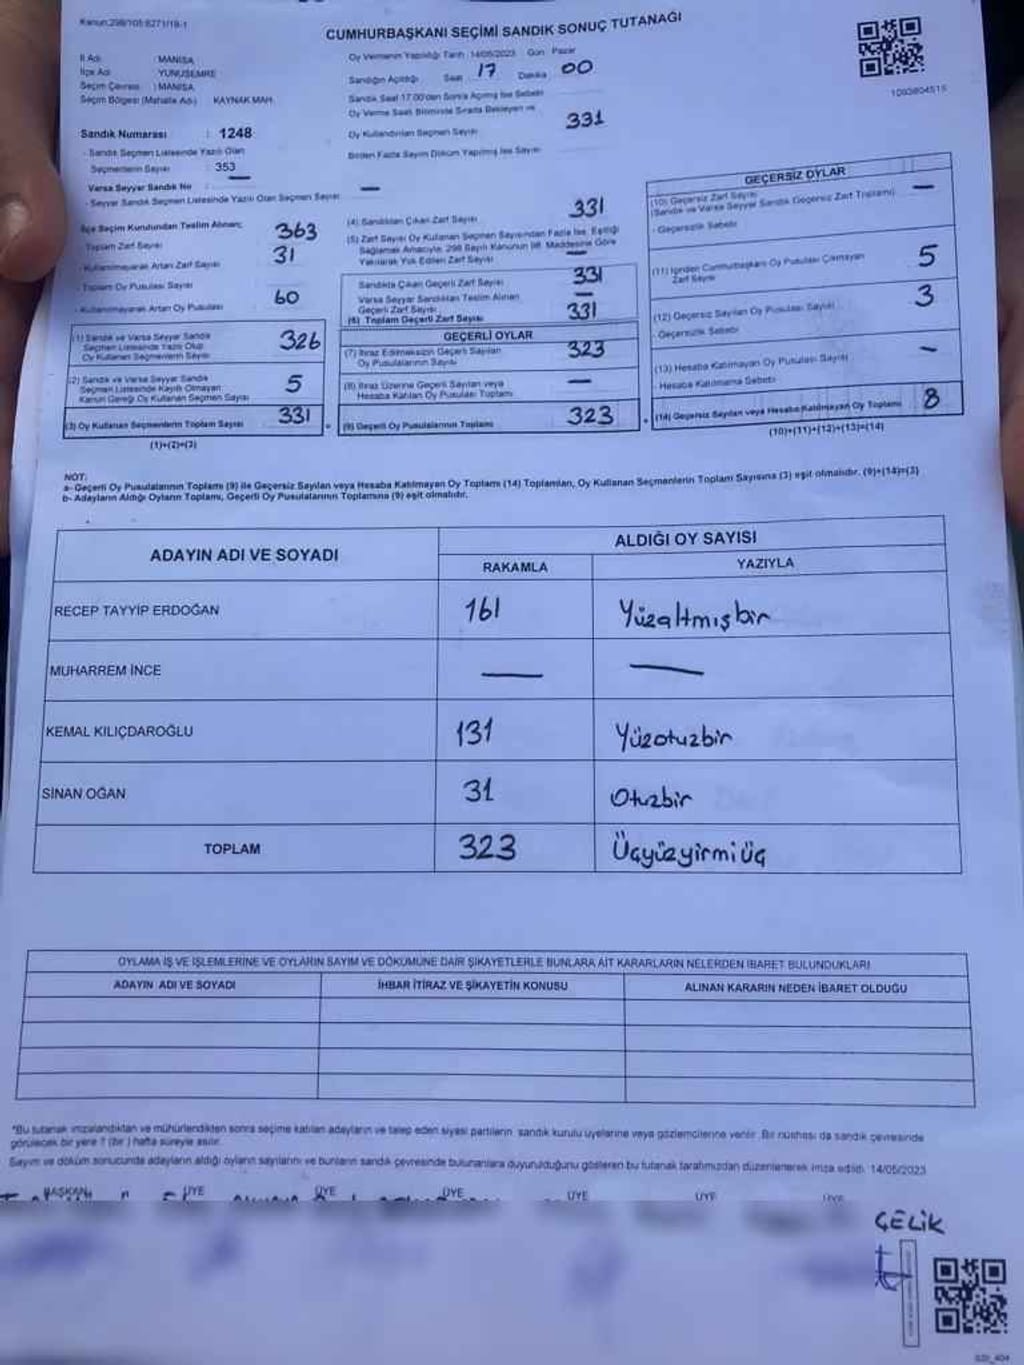 Kanun:298/105;6271/19-1
CUMHURBAŞKANI SEÇİMİ SANDIK SONUÇ TUTANAĞI
İl Adı : MANİSA
İlçe Adı : YUNUSEMRE
Seçim Çevresi : MANİSA
Seçim Bölgesi (Mahalle Adı) : KAYNAK MAH.
Sandık Numarası : 1248
- Sandık Seçmen Listesinde Yazılı Olan
Seçmenlerin Sayısı : 353
Varsa Seyyar Sandık No : —
- Seyyar Sandık Seçmen Listesinde Yazılı Olan Seçmen Sayısı : —
Oy Vermenin Yapıldığı Tarih : 14/05/2023 Gün : Pazar
Sandığın Açıldığı Saat 17 Dakika 00
Sandık Saat 17.00'den Sonra Açılmış İse Sebebi :
Oy Verme Saati Bitiminde Sırada Bekleyen ve
Oy Kullandırılan Seçmen Sayısı : 331
Birden Fazla Sayım Döküm Yapılmış İse Sayısı :
1093804515
İlçe Seçim Kurulundan Teslim Alınan;
- Toplam Zarf Sayısı : 363
- Kullanılmayarak Artan Zarf Sayısı : 31
- Toplam Oy Pusulası Sayısı :
- Kullanılmayarak Artan Oy Pusulası : 60
(1) Sandık ve Varsa Seyyar Sandık
Seçmen Listesinde Yazılı Olup
Oy Kullanan Seçmenlerin Sayısı 326
(2) Sandık ve Varsa Seyyar Sandık
Seçmen Listesinde Kayıtlı Olmayan
Kanun Gereği Oy Kullanan Seçmen Sayısı 5
(3) Oy Kullanan Seçmenlerin Toplam Sayısı 331
(1)+(2)=(3)
(4) Sandıktan Çıkan Zarf Sayısı : 331
(5) Zarf Sayısı Oy Kullanan Seçmen Sayısından Fazla İse, Eşitliği
Sağlamak Amacıyla, 298 Sayılı Kanunun 98. Maddesine Göre
Yakılarak Yok Edilen Zarf Sayısı : —
Sandıkta Çıkan Geçerli Zarf Sayısı 331
Varsa Seyyar Sandıktan Teslim Alınan
Geçerli Zarf Sayısı —
(6) Toplam Geçerli Zarf Sayısı 331
GEÇERLİ OYLAR
(7) İtiraz Edilmeksizin Geçerli Sayılan
Oy Pusulalarının Sayısı 323
(8) İtiraz Üzerine Geçerli Sayılan veya
Hesaba Katılan Oy Pusulası Toplamı —
(9) Geçerli Oy Pusulalarının Toplamı 323
GEÇERSİZ OYLAR
(10) Geçersiz Zarf Sayısı
(Sandık ve Varsa Seyyar Sandık Geçersiz Zarf Toplamı) —
- Geçersizlik Sebebi :
(11) İçinden Cumhurbaşkanı Oy Pusulası Çıkmayan
Zarf Sayısı 5
(12) Geçersiz Sayılan Oy Pusulası Sayısı 3
- Geçersizlik Sebebi :
(13) Hesaba Katılmayan Oy Pusulası Sayısı —
- Hesaba Katılmama Sebebi :
(14) Geçersiz Sayılan veya Hesaba Katılmayan Oy Toplamı 8
(10)+(11)+(12)+(13)=(14)
NOT:
a- Geçerli Oy Pusulalarının Toplamı (9) ile Geçersiz Sayılan veya Hesaba Katılmayan Oy Toplamı (14) Toplamları, Oy Kullanan Seçmenlerin Toplam Sayısına (3) eşit olmalıdır. (9)+(14)=(3)
b- Adayların Aldığı Oyların Toplamı, Geçerli Oy Pusulalarının Toplamına (9) eşit olmalıdır.
ADAYIN ADI VE SOYADI
ALDIĞI OY SAYISI
RAKAMLA YAZIYLA
RECEP TAYYİP ERDOĞAN 161 Yüzaltmışbir
MUHARREM İNCE — —
KEMAL KILIÇDAROĞLU 131 Yüzotuzbir
SİNAN OĞAN 31 Otuzbir
TOPLAM 323 Üçyüzyirmiüç
OYLAMA İŞ VE İŞLEMLERİNE VE OYLARIN SAYIM VE DÖKÜMÜNE DAİR ŞİKAYETLERLE BUNLARA AİT KARARLARIN NELERDEN İBARET BULUNDUKLARI
ADAYIN ADI VE SOYADI İHBAR İTİRAZ VE ŞİKAYETİN KONUSU ALINAN KARARIN NEDEN İBARET OLDUĞU
*Bu tutanak imzalandıktan ve mühürlendikten sonra seçime katılan adayların ve talep eden siyasi partilerin, sandık kurulu üyelerine veya gözlemcilerine verilir. Bir nüshası da sandık çevresinde
görülecek bir yere 1 (bir) hafta süreyle asılır.
Sayım ve döküm sonucunda adayların aldığı oyların sayılarını ve bunların sandık çevresinde bulunanlara duyurulduğunu gösteren bu tutanak tarafımızdan düzenlenerek imza edildi. 14/05/2023
BAŞKAN ÜYE ÜYE ÜYE ÜYE ÜYE ÜYE
ÇELİK